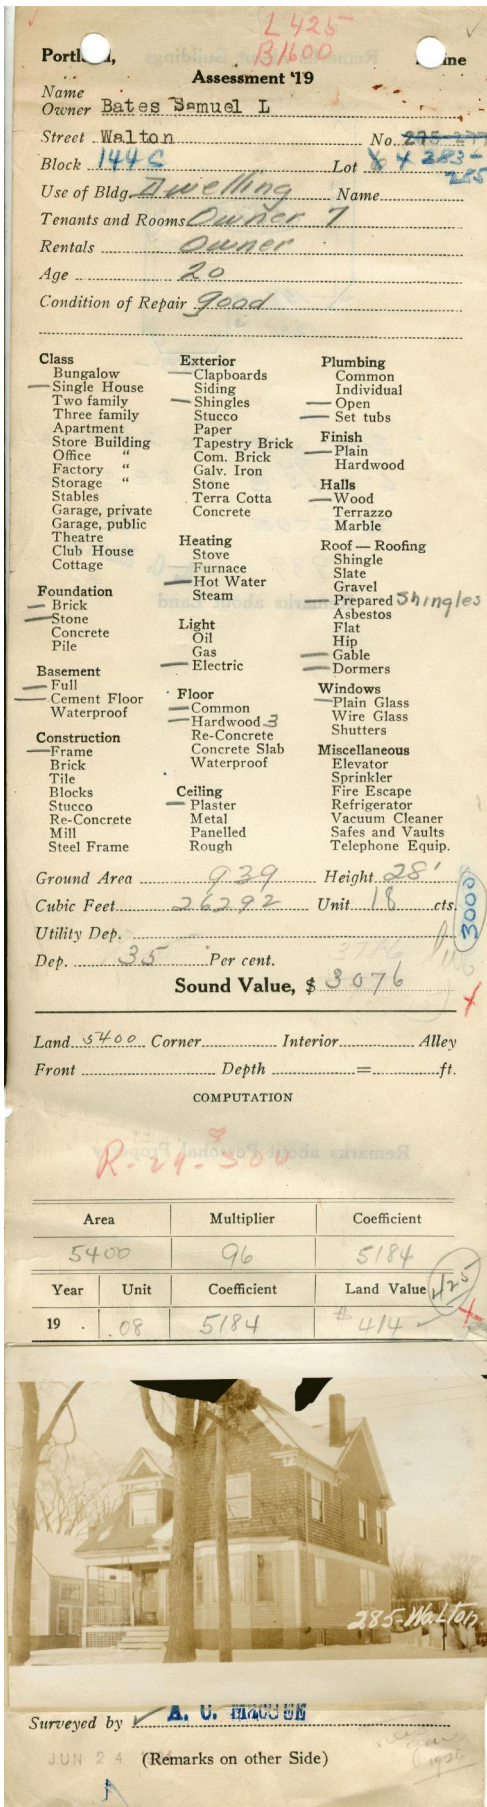 L 425
B 1600
Portland, Maine
Assessment '19
Name
Owner Bates Samuel L
Street Walton No. 275-277
Block 144 C Lot 8 4 283-
285
Use of Bldg. Dwelling Name
Tenants and Rooms Owner 7
Rentals Owner
Age 20
Condition of Repair good
Class
Bungalow
Single House
Two family
Three family
Apartment
Store Building
Office "
Factory "
Storage "
Stables
Garage, private
Garage, public
Theatre
Club House
Cottage
Foundation
Brick
Stone
Concrete
Pile
Basement
Full
Cement Floor
Waterproof
Construction
Frame
Brick
Tile
Blocks
Stucco
Re-Concrete
Mill
Steel Frame
Exterior
Clapboards
Siding
Shingles
Stucco
Paper
Tapestry Brick
Com. Brick
Galv. Iron
Stone
Terra Cotta
Concrete
Heating
Stove
Furnace
Hot Water
Steam
Light
Oil
Gas
Electric
Floor
Common
Hardwood 3
Re-Concrete
Concrete Slab
Waterproof
Ceiling
Plaster
Metal
Panelled
Rough
Plumbing
Common
Individual
Open
Set tubs
Finish
Plain
Hardwood
Halls
Wood
Terrazzo
Marble
Roof — Roofing
Shingle
Slate
Gravel
Prepared Shingles
Asbestos
Flat
Hip
Gable
Dormers
Windows
Plain Glass
Wire Glass
Shutters
Miscellaneous
Elevator
Sprinkler
Fire Escape
Refrigerator
Vacuum Cleaner
Safes and Vaults
Telephone Equip.
Ground Area 939 Height 28'
Cubic Feet 26292 Unit 18 cts.
3000
Utility Dep.
3786
Dep. 35 Per cent.
Sound Value, $ 3076
Land 5400 Corner Interior Alley
Front Depth = ft.
COMPUTATION
Area Multiplier Coefficient
5400 96 5184
Year Unit Coefficient Land Value 425
19 .08 5184 $ 414
285-Walton.
Surveyed by A. C.
JUN 24 (Remarks on other Side)